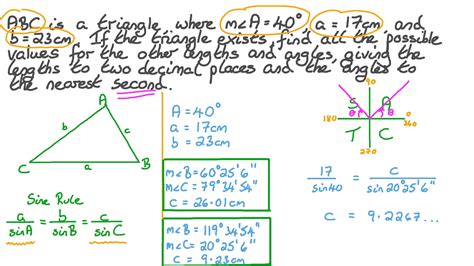 ABC is a triangle where m∠A = 40°, a = 17cm and
b = 23cm. If the triangle exists, find all the possible
values for the other lengths and angles, giving the
lengths to two decimal places and the angles to
the nearest second.
A
b
c
C
a
B
Sine Rule
a/sinA = b/sinB = c/sinC
A = 40°
a = 17cm
b = 23cm
m∠B = 60°25'6"
m∠C = 79°34'54"
c = 26.01cm
m∠B = 119°34'54"
m∠C = 20°25'6"
c = 9.23cm
90
S A
θ θ
180 0
360
T C
270
17/sin40 = c/sin20°25'6"
c = 9.2267...